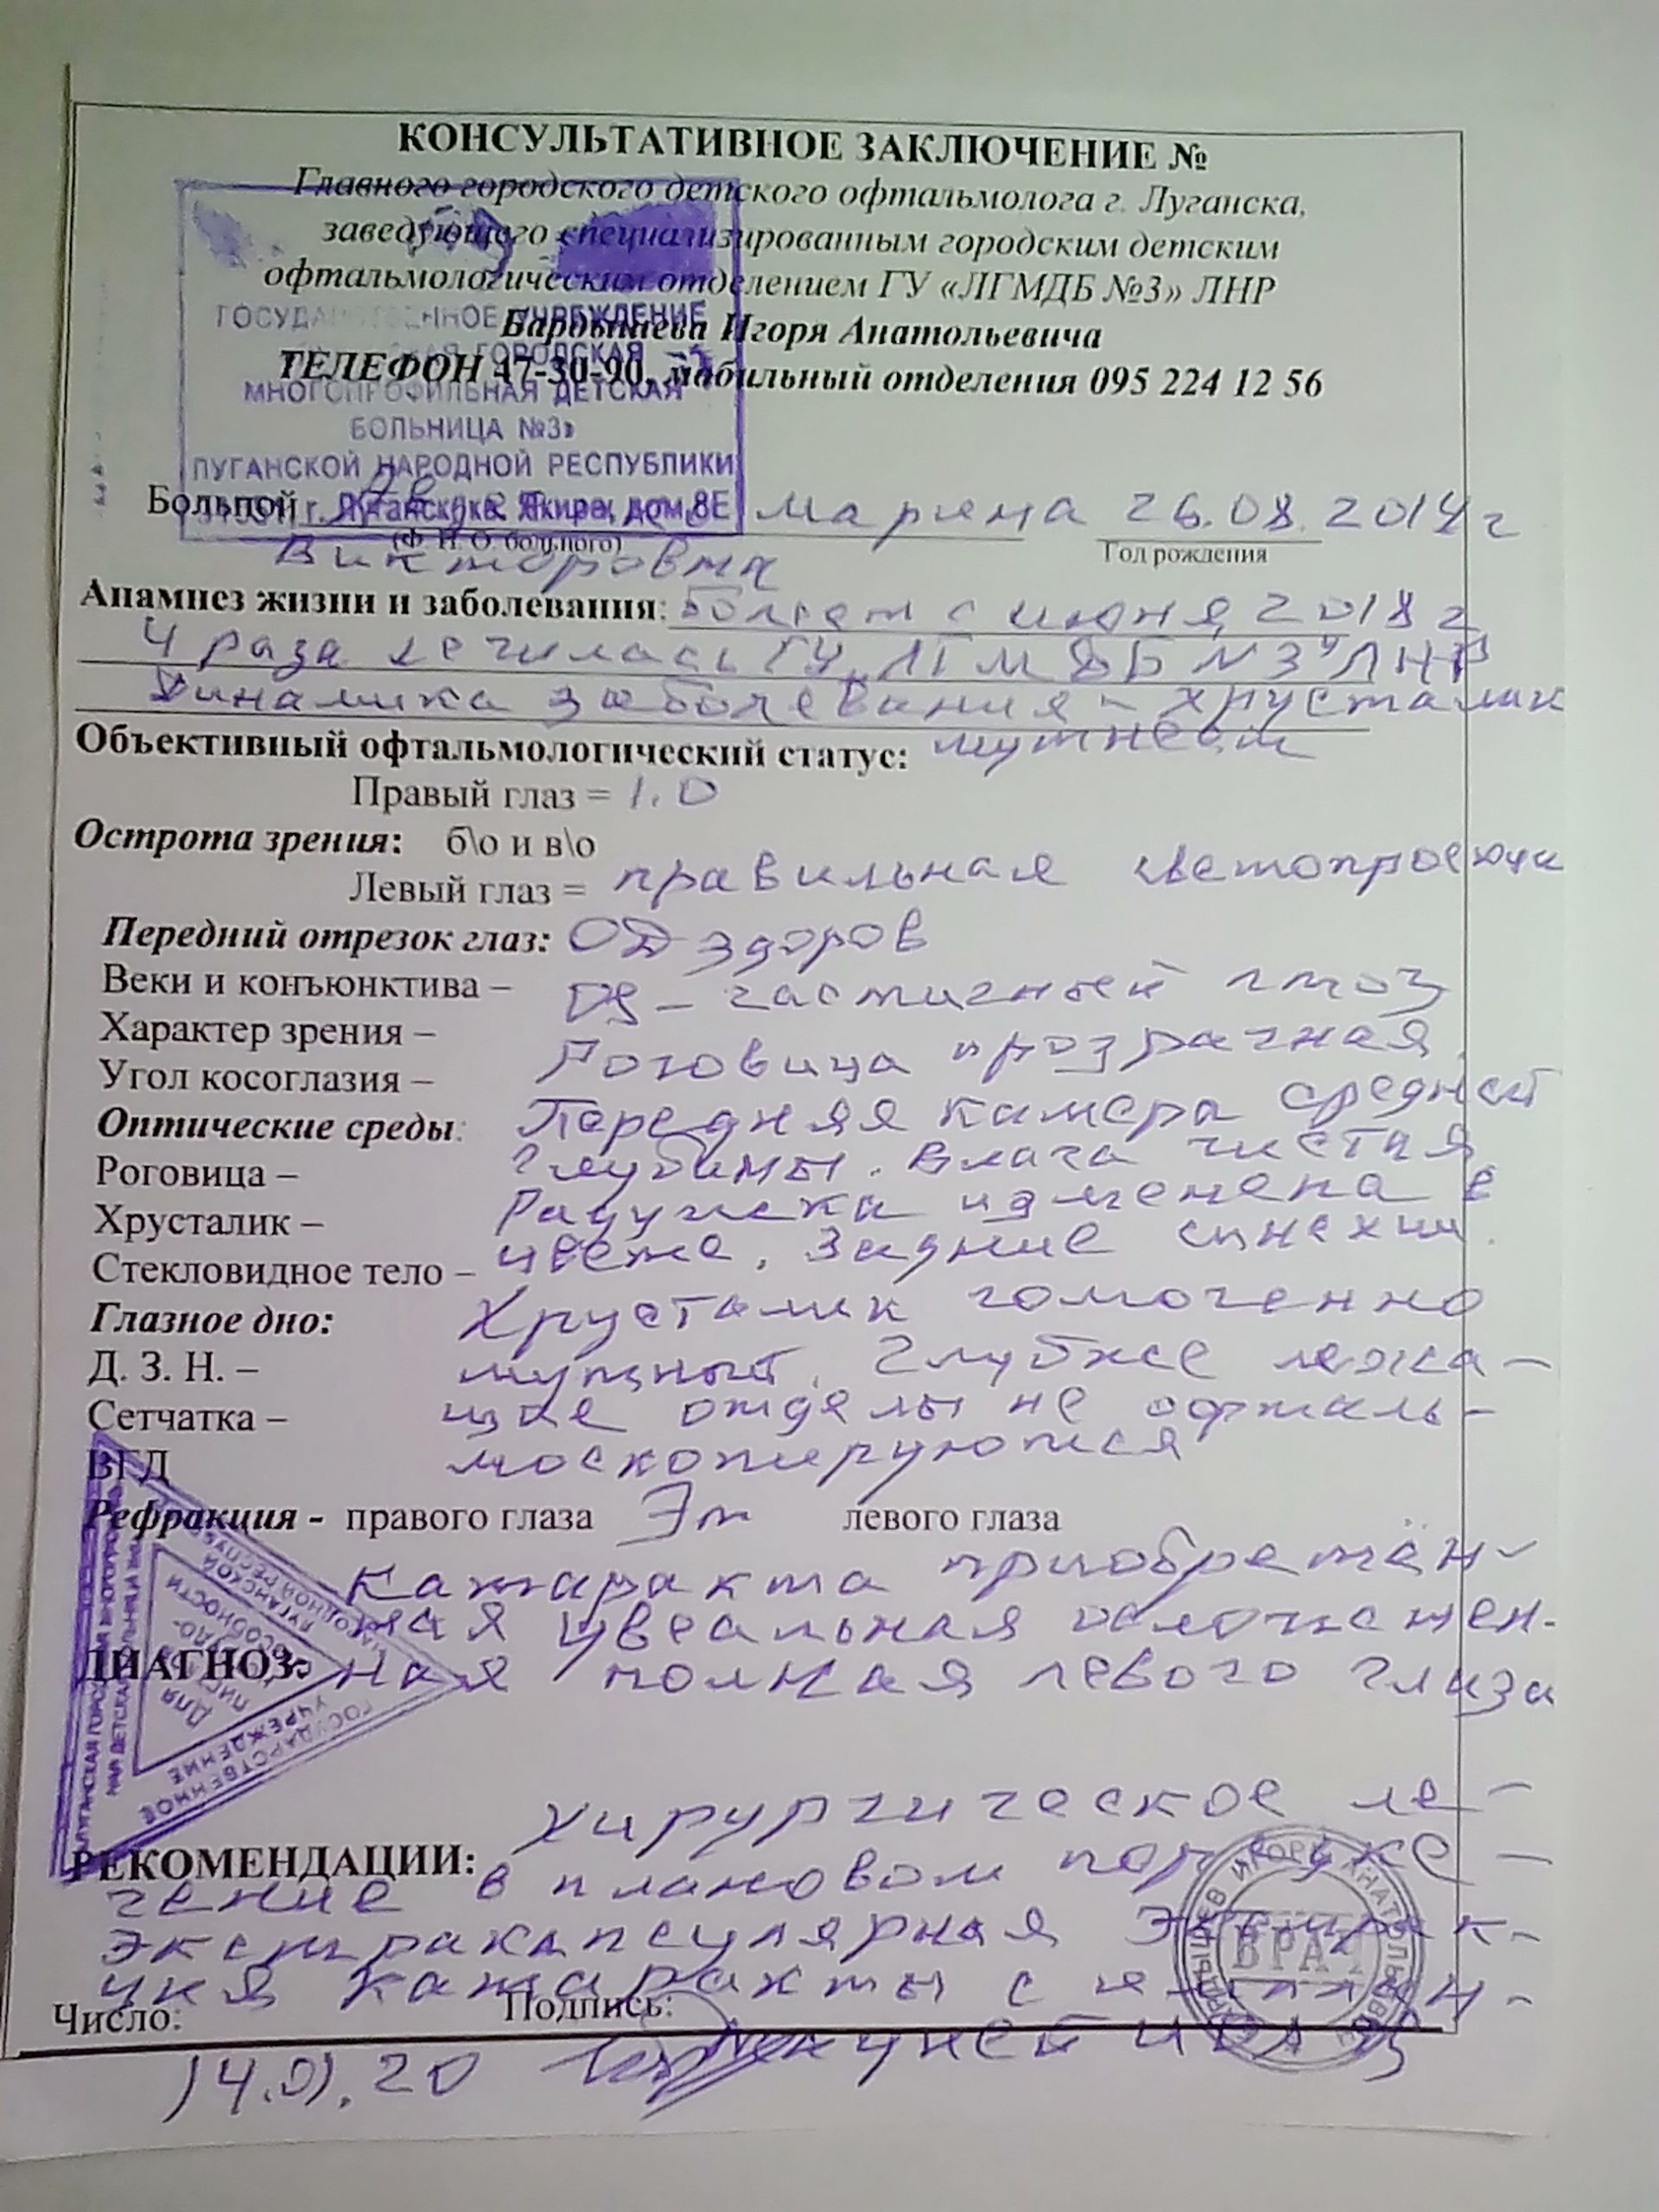 КОНСУЛЬТАТИВНОЕ ЗАКЛЮЧЕНИЕ №
Главного городского детского офтальмолога г. Луганска,
заведующего специализированным городским детским
офтальмологическим отделением ГУ «ЛГМДБ №3» ЛНР
Игоря Анатольевича
ТЕЛЕФОН 47-30-90, мобильный отделения 095 224 12 56
ГОСУДАРСТВЕННОЕ УЧРЕЖДЕНИЕ
ГОРОДСКАЯ
МНОГОПРОФИЛЬНАЯ ДЕТСКАЯ
БОЛЬНИЦА №3»
ЛУГАНСКОЙ НАРОДНОЙ РЕСПУБЛИКИ
г. Луганск, дом 8Е
Больной Марина 26.08.2014 г
(Ф. И. О. больного) Год рождения
Викторовна
Анамнез жизни и заболевания: Болеет с июня 2018 г
4 раза лечилась ГУ "ЛГМДБ N3" ЛНР
Динамика заболевания – хрусталик
Объективный офтальмологический статус: мутнеет
Правый глаз = 1.0
Острота зрения: б\о и в\о
Левый глаз = правильная светопроекция
Передний отрезок глаз: OD здоров
Веки и конъюнктива – OS – частичный птоз
Характер зрения – Роговица прозрачная.
Угол косоглазия –
Оптические среды: Передняя камера средней
Роговица – глубины. Влага чистая
Хрусталик – Радужка изменена в
Стекловидное тело – цвете. Задние синехии.
Глазное дно: Хрусталик гомогенно
Д. З. Н. – мутный. Глубже лежа-
Сетчатка – щие отделы не офталь-
ВГД москопируются
Рефракция - правого глаза Эм левого глаза
Катаракта приобретён-
ная увеальная осложнен-
ДИАГНОЗ: ная полная левого глаза
Для
ГОСУДАРСТВЕННОЕ
УЧРЕЖДЕНИЕ
хирургическое ле-
РЕКОМЕНДАЦИИ:
чение в плановом порядке –
экстракапсулярная экстрак-
ция катаракты с имплан-
Число: Подпись:
14.01.20
ВРАЧ
ИГОРЬ АНАТОЛЬЕВИЧ